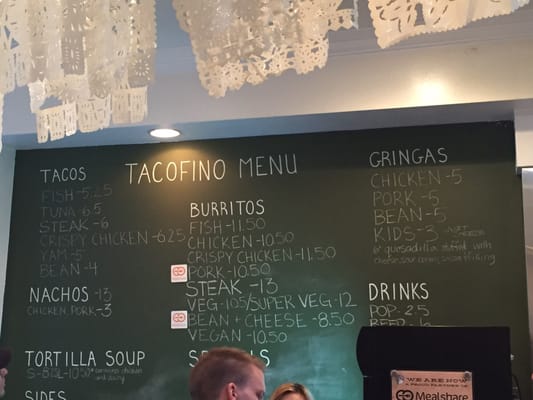 TACOFINO MENU
TACOS
FISH-5.25
TUNA-6.5
STEAK-6
CRISPY CHICKEN-6.25
YAM-5
BEAN-4
NACHOS-13
CHICKEN, PORK-3
TORTILLA SOUP
SIDES
BURRITOS
FISH-11.50
CHICKEN-10.50
CRISPY CHICKEN-11.50
PORK-10.50
STEAK-13
VEG-10.5/SUPER VEG-12
BEAN + CHEESE-8.50
VEGAN-10.50
GRINGAS
CHICKEN-5
PORK-5
BEAN-5
KIDS-3
or quesadilla stuffed with
DRINKS
POP-2.5
BEER-6
WE ARE NOW
A PROUD PARTNER OF
Mealshare